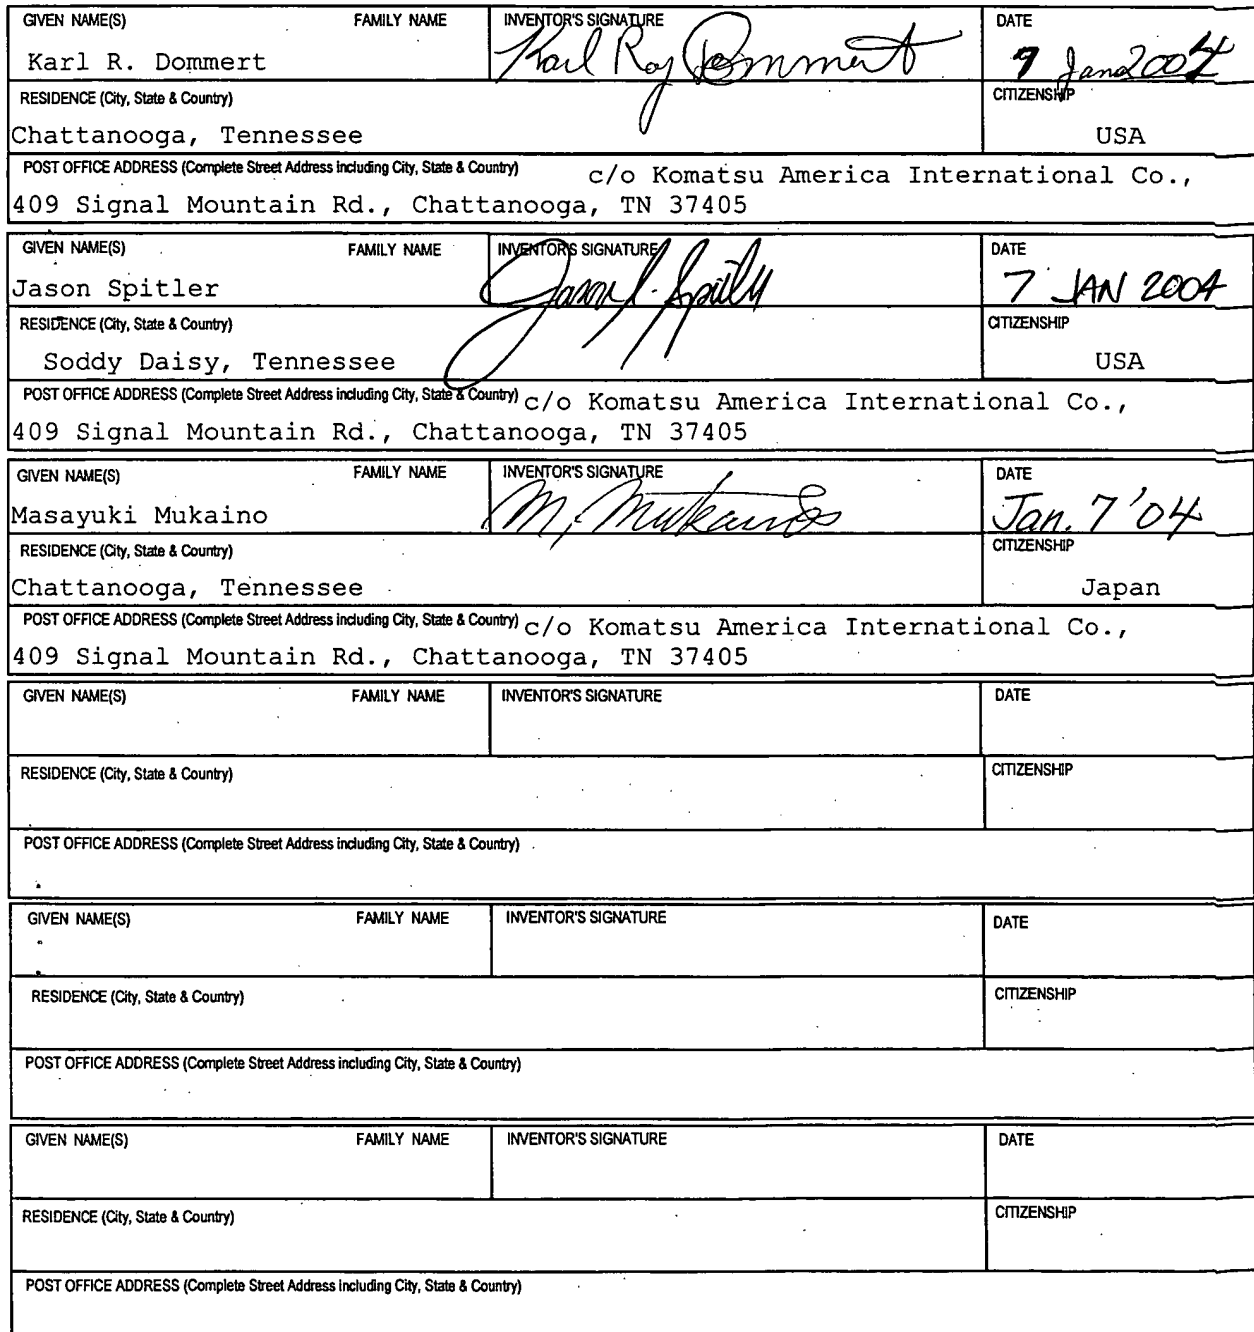 GIVEN NAME(S) FAMILY NAME INVENTOR'S SIGNATURE DATE
Karl R. Dommert Karl Roy Dommert 7 Jan 2004
RESIDENCE (City, State & Country) CITIZENSHIP
Chattanooga, Tennessee USA
POST OFFICE ADDRESS (Complete Street Address including City, State & Country) c/o Komatsu America International Co.,
409 Signal Mountain Rd., Chattanooga, TN 37405
GIVEN NAME(S) FAMILY NAME INVENTOR'S SIGNATURE DATE
Jason Spitler 7 JAN 2004
RESIDENCE (City, State & Country) CITIZENSHIP
Soddy Daisy, Tennessee USA
POST OFFICE ADDRESS (Complete Street Address including City, State & Country) c/o Komatsu America International Co.,
409 Signal Mountain Rd., Chattanooga, TN 37405
GIVEN NAME(S) FAMILY NAME INVENTOR'S SIGNATURE DATE
Masayuki Mukaino M. Mukaino Jan. 7 '04
RESIDENCE (City, State & Country) CITIZENSHIP
Chattanooga, Tennessee Japan
POST OFFICE ADDRESS (Complete Street Address including City, State & Country) c/o Komatsu America International Co.,
409 Signal Mountain Rd., Chattanooga, TN 37405
GIVEN NAME(S) FAMILY NAME INVENTOR'S SIGNATURE DATE
RESIDENCE (City, State & Country) CITIZENSHIP
POST OFFICE ADDRESS (Complete Street Address including City, State & Country)
GIVEN NAME(S) FAMILY NAME INVENTOR'S SIGNATURE DATE
RESIDENCE (City, State & Country) CITIZENSHIP
POST OFFICE ADDRESS (Complete Street Address including City, State & Country)
GIVEN NAME(S) FAMILY NAME INVENTOR'S SIGNATURE DATE
RESIDENCE (City, State & Country) CITIZENSHIP
POST OFFICE ADDRESS (Complete Street Address including City, State & Country)